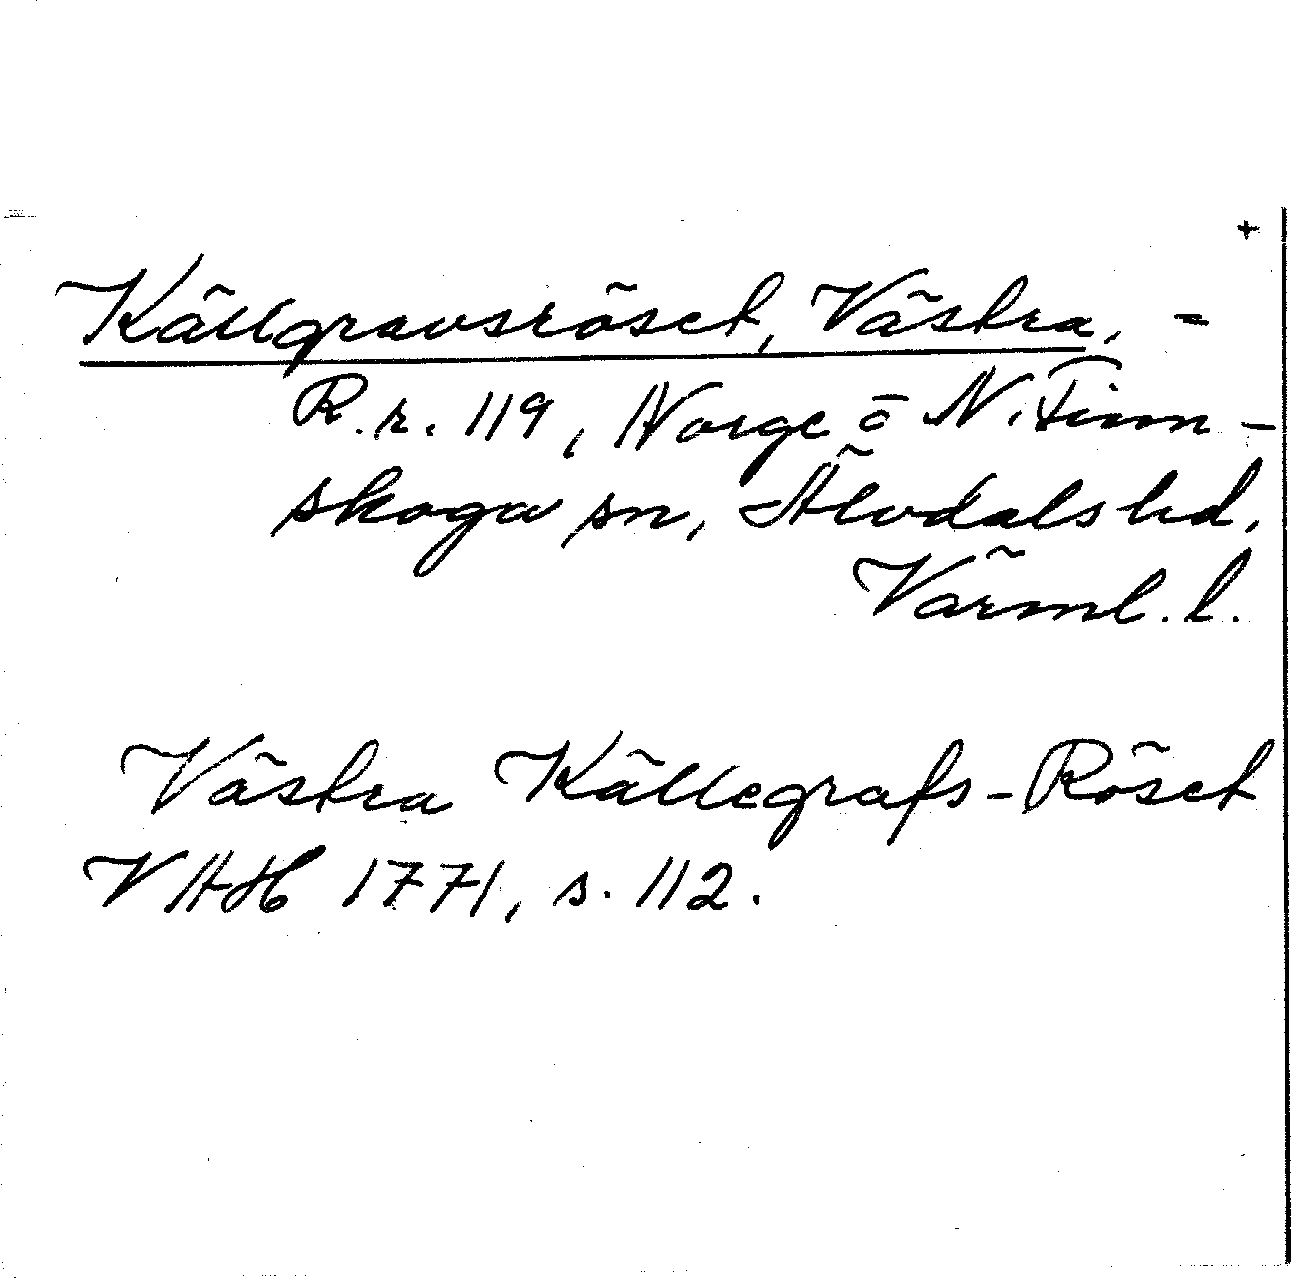 +
Källgravsröset, Västra, =
R.r. 119, Norge o N. Finn-
skoga sn, Älvdals hd,
Värml. l.
Västra Källegrafs-Röset
VAH 1771, s. 112.